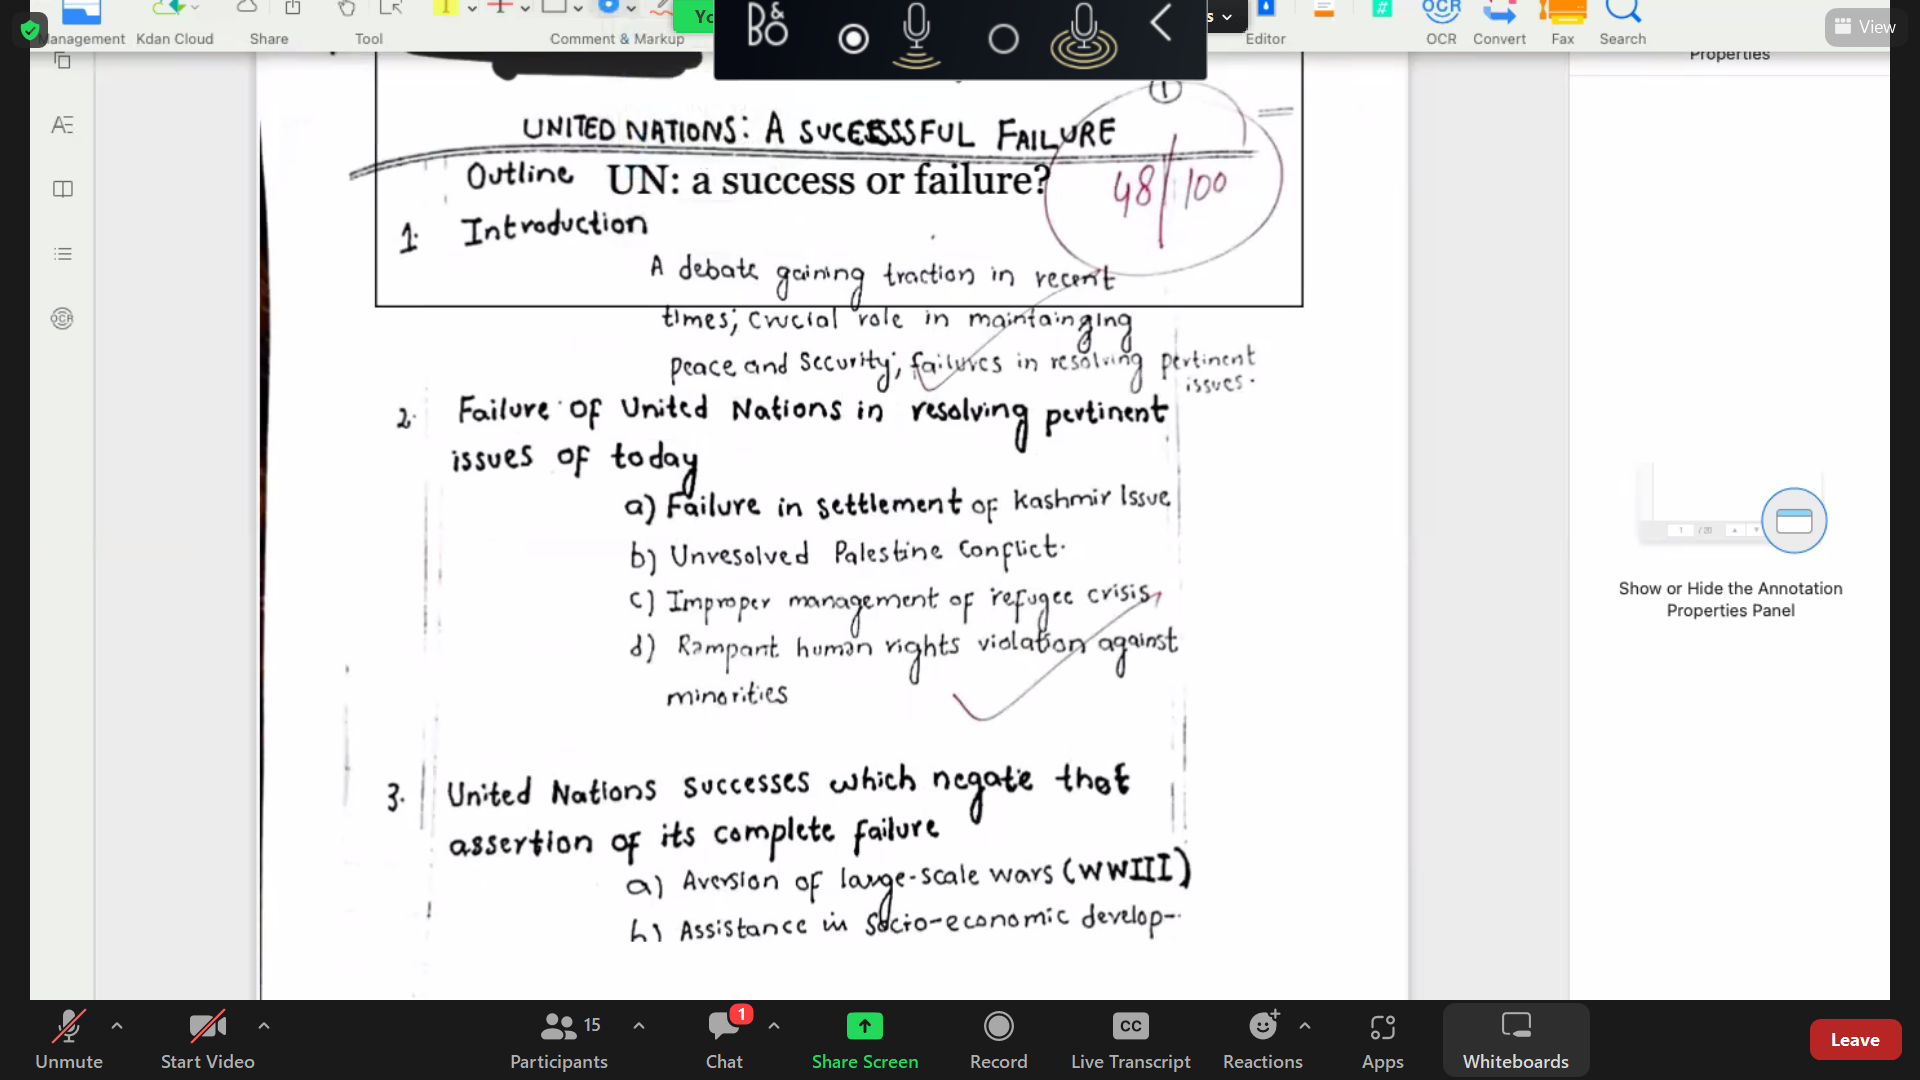 View
Management Kdan Cloud Share Tool Comment & Markup Editor OCR Convert Fax Search
B&O
OCR
Properties
1
UNITED NATIONS: A SUCESSSFUL FAILURE
Outline UN: a success or failure?
48/100
1. Introduction
A debate gaining traction in recent
times; crucial role in maintainging
peace and security; failures in resolving pertinent
issues.
2. Failure of United Nations in resolving pertinent
issues of today
a) Failure in settlement of Kashmir Issue
b) Unresolved Palestine Conflict.
c) Improper management of refugee crisis
d) Rampant human rights violation against
minorities
3. United Nations successes which negate that
assertion of its complete failure
a) Aversion of large-scale wars (WWIII)
b) Assistance in Socio-economic develop-
Show or Hide the Annotation
Properties Panel
15
1
CC
Unmute Start Video Participants Chat Share Screen Record Live Transcript Reactions Apps Whiteboards Leave